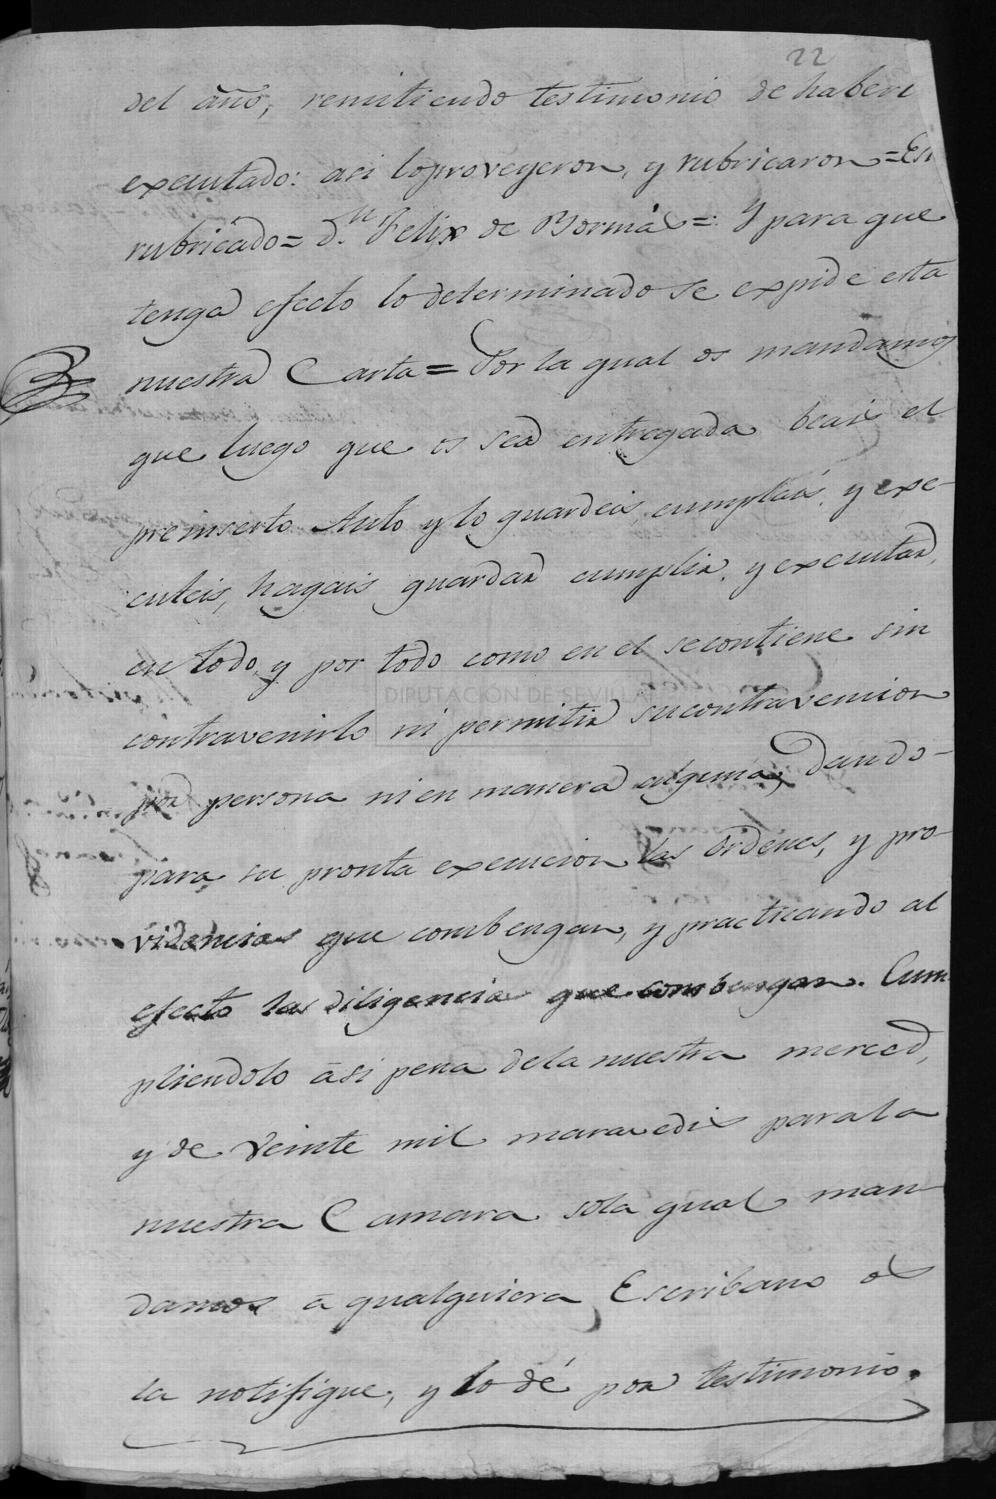 22
del año, remitiendo testimonio de haberl
executado: asi lo proveyeron, y rubricaron = Es
rubricado = D.n Felix de Bormás = Y para que
tenga efecto lo determinado se expide esta
nuestra Carta = Por la qual os mandamos
que luego que os sea entregada beais el
preinserto Auto y lo guardeis, cumplais, y exe-
cuteis, hagais guardar cumplir, y executar,
en todo, y por todo como en el se contiene sin
contravenirlo ni permitir su contravencion
por persona ni en manera alguna, Dando-
para su pronta execucion las ordenes, y pro-
videncias que combengan, y practicando al
efecto las diligencias que combengan. Cum
pliendolo asi pena de la nuestra merced,
y de Veinte mil maravedis para la
nuestra Camara sola qual man-
damos a qualquiera Escribano os
la notifique, y lo dé por testimonio.
DIPUTACIÓN DE SEVILLA